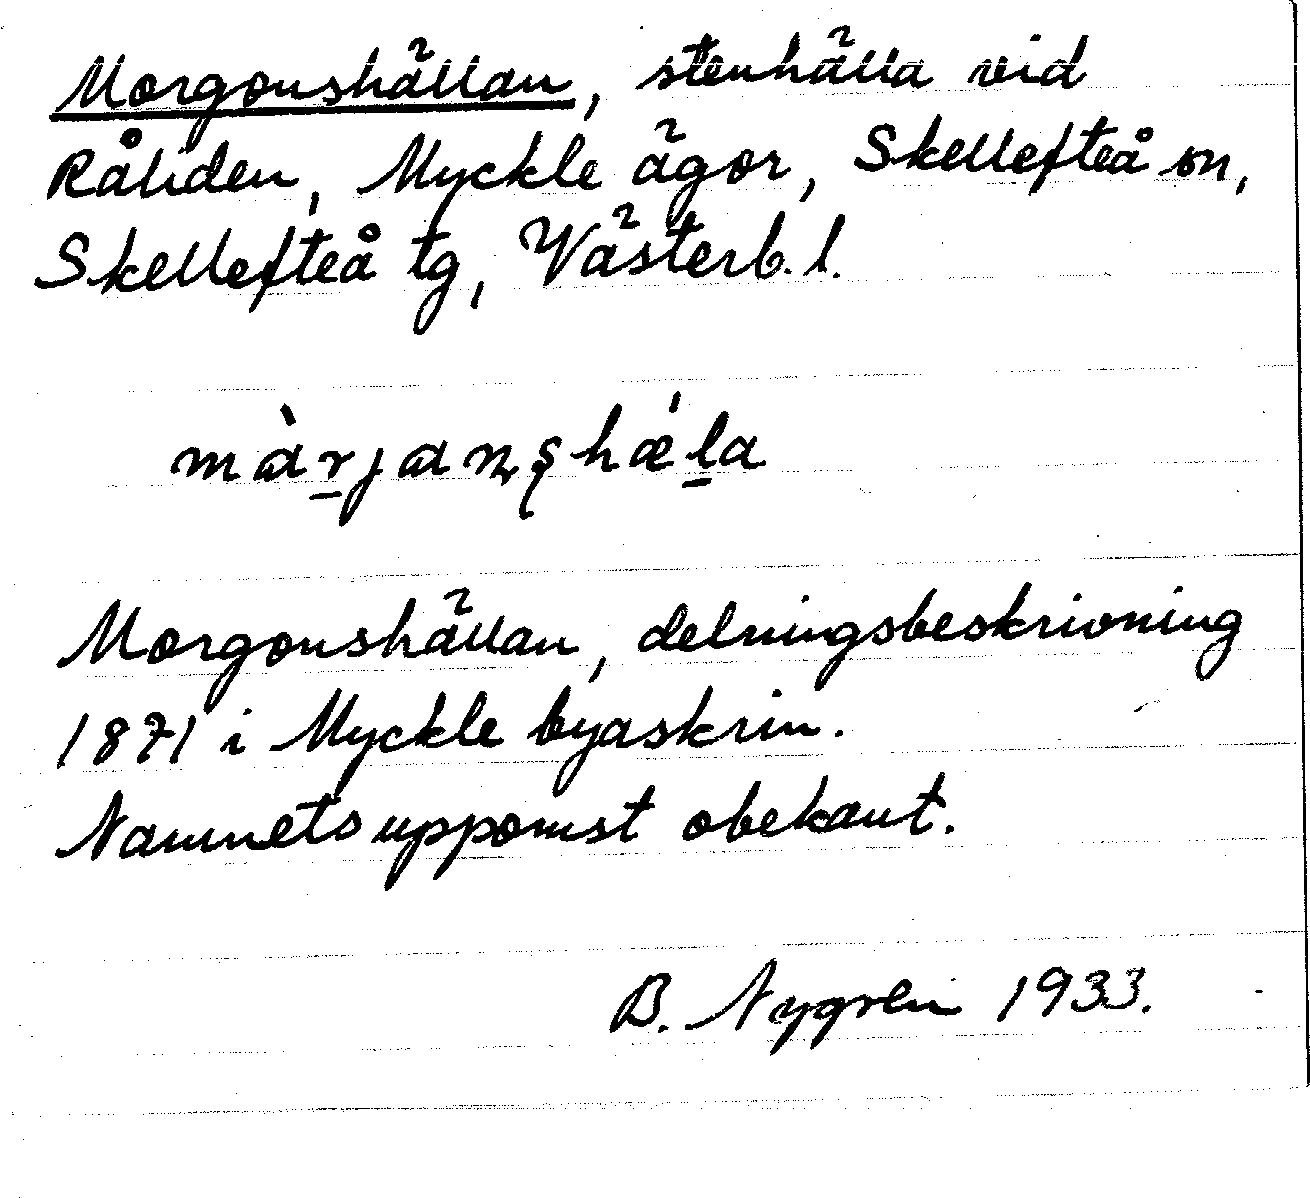 Morgonshällan, stenhälla vid
Råliden, Myckle ägor, Skellefteå sn,
Skellefteå tg, Västerb. l.
màrjanʂhǽla
Morgonshällan, delningsbeskrivning
1871 i Myckle byaskrin.
Namnets uppomst obekant.
B. Nygren 1933.